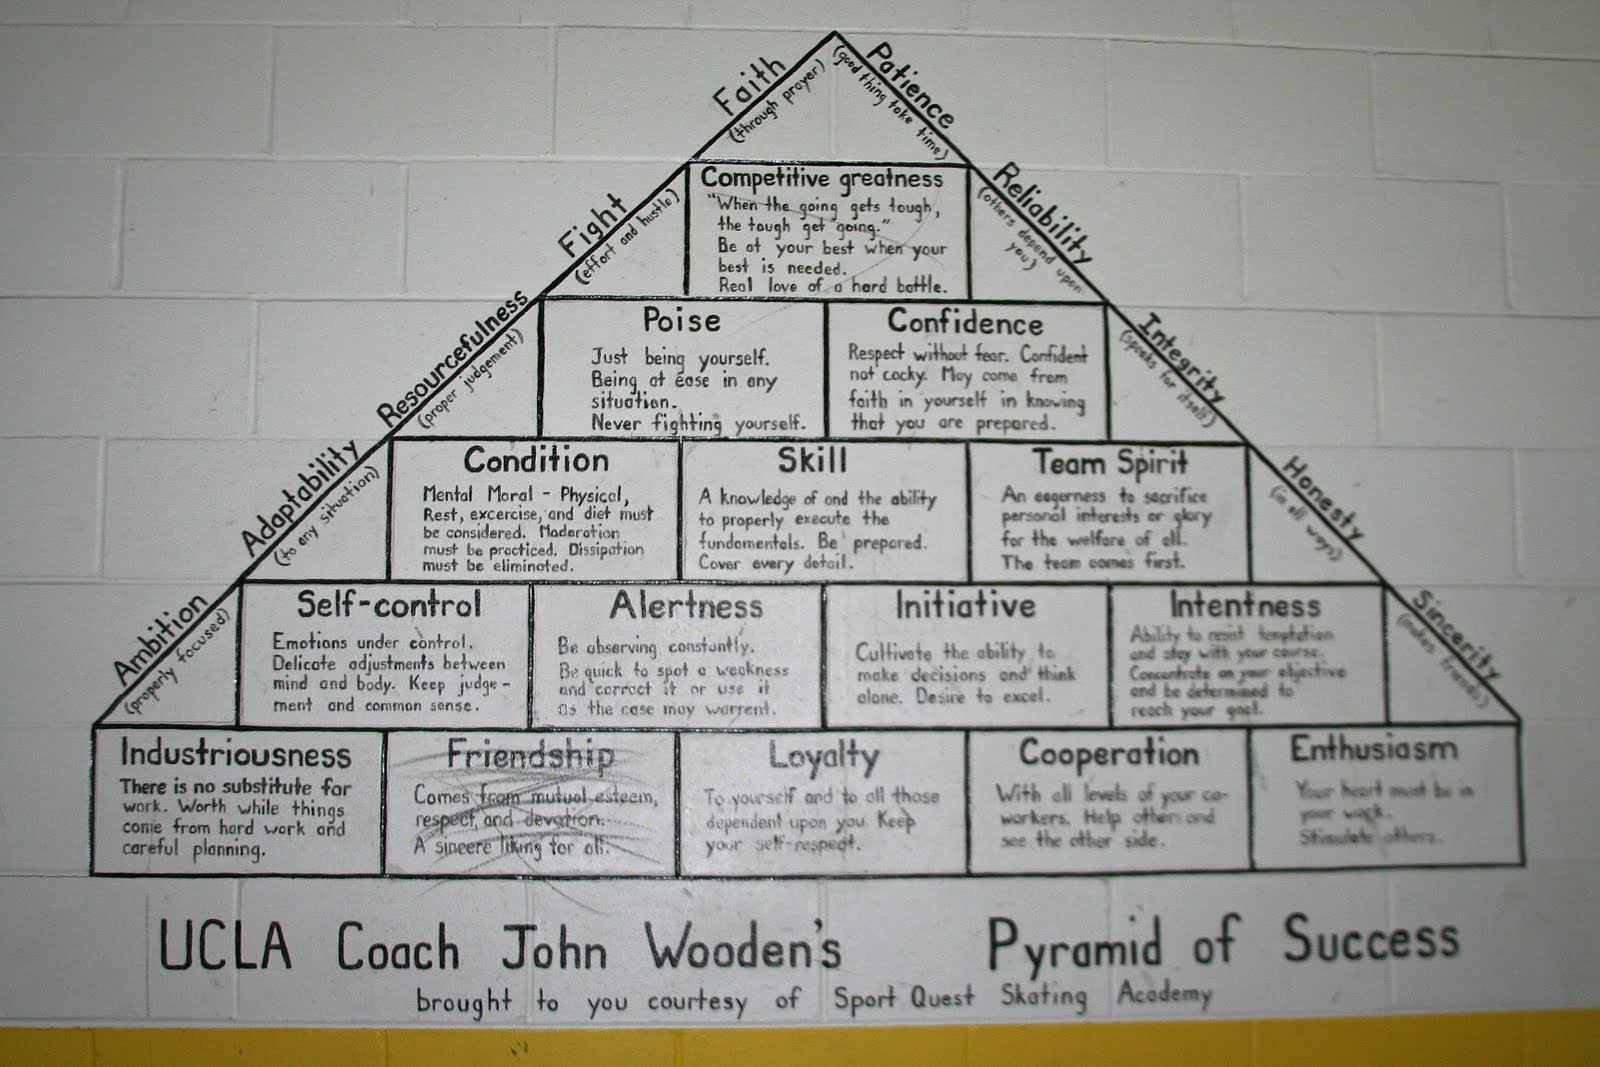 Faith
(through prayer)
Patience
(good thing take time)
Fight
(effort and hustle)
Competitive greatness
"When the going gets tough,
the tough get going."
Be at your best when your
best is needed.
Real love of a hard battle.
Reliability
(others depend upon
you)
Resourcefulness
(proper judgement)
Poise
Just being yourself.
Being at ease in any
situation.
Never fighting yourself.
Confidence
Respect without fear. Confident
not cocky. May come from
faith in yourself in knowing
that you are prepared.
Integrity
(speaks for itself)
Adaptability
(to any situation)
Condition
Mental Moral - Physical,
Rest, excercise, and diet must
be considered. Moderation
must be practiced. Dissipation
must be eliminated.
Skill
A knowledge of and the ability
to properly execute the
fundamentals. Be prepared.
Cover every detail.
Team Spirit
An eagerness to sacrifice
personal interests or glory
for the welfare of all.
The team comes first.
Honesty
(in all ways)
Ambition
(properly focused)
Self-control
Emotions under control.
Delicate adjustments between
mind and body. Keep judge-
ment and common sense.
Alertness
Be observing constantly.
Be quick to spot a weakness
and correct it or use it
as the case may warrent.
Initiative
Cultivate the ability to
make decisions and think
alone. Desire to excel.
Intentness
Ability to resist temptation
and stay with your course.
Concentrate on your objective
and be determined to
reach your goal.
Sincerity
(makes friends)
Industriousness
There is no substitute for
work. Worth while things
come from hard work and
careful planning.
Friendship
Comes from mutual esteem,
respect, and devotion.
A sincere liking for all.
Loyalty
To yourself and to all those
dependent upon you. Keep
your self-respect.
Cooperation
With all levels of your co-
workers. Help others and
see the other side.
Enthusiasm
Your heart must be in
your work.
Stimulate others.
UCLA Coach John Wooden's Pyramid of Success
brought to you courtesy of Sport Quest Skating Academy